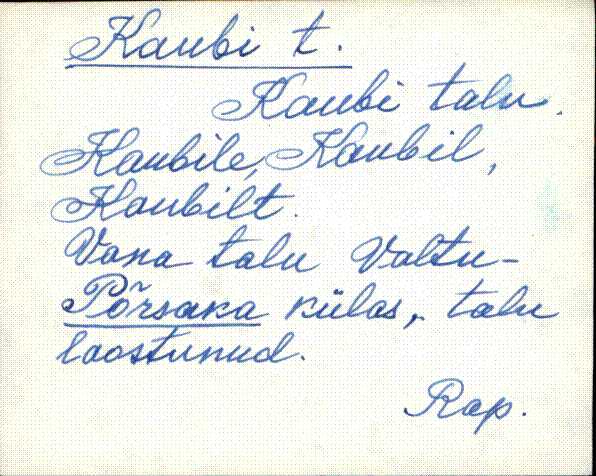 Kaubi t.
Kaubi talu.
Kaubile, Kaubil,
Kaubilt.
Vana talu Valtu-
Põrsaka külas, talu
laostunud.
Rap.